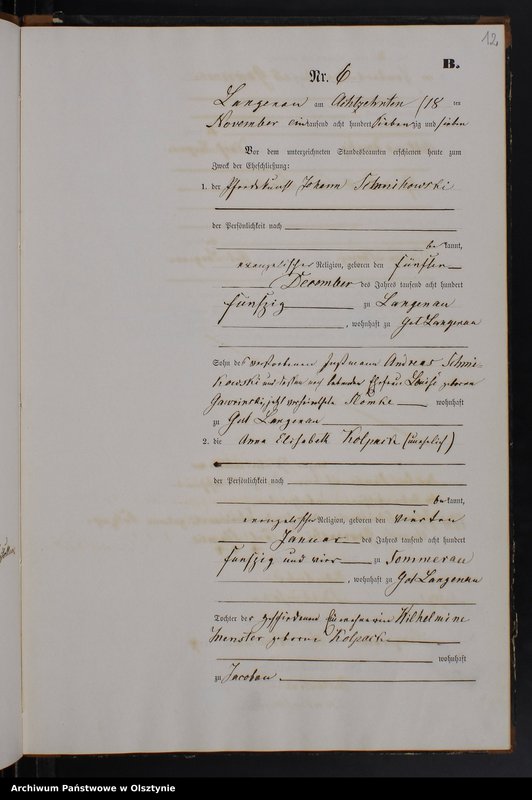 12
B.
Nr. 6
Langenau am Achtzehnten /18 ten
November eintausend acht hundert siebenzig und sieben
Vor dem unterzeichneten Standesbeamten erschienen heute zum
Zweck der Eheschließung:
1. der Pferdeknecht Johann Schnikowski
der Persönlichkeit nach
bekannt,
evangelischer Religion, geboren den fünften
December des Jahres tausend acht hundert
fünfzig zu Langenau
, wohnhaft zu Gut Langenau
Sohn des verstorbenen Andreas Schni-
kowski und dessen noch lebenden Ehefrau Louise geboren
jetzt verehelichte wohnhaft
zu Gut Langenau
2. die Anna Elisabeth Kolpack (unehelich)
der Persönlichkeit nach
bekannt,
evangelischer Religion, geboren den vierten
Januar des Jahres tausend acht hundert
fünfzig und vier zu Sommerau
, wohnhaft zu Gut Langenau
Tochter der geschiedenen Wilhelmine
geborene Kolpack
wohnhaft
zu Jacobau
Archiwum Państwowe w Olsztynie